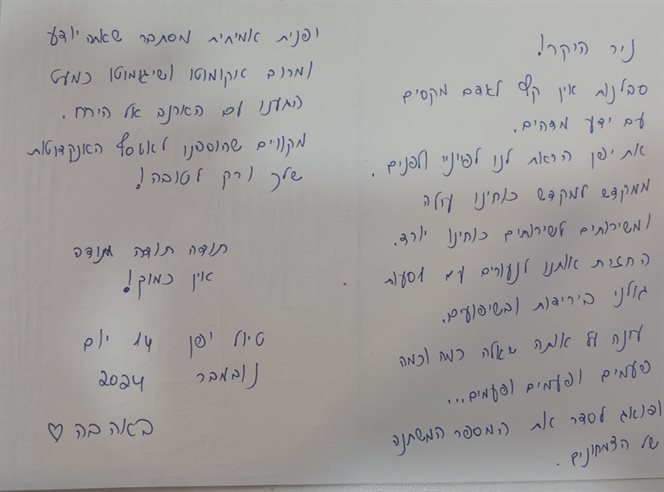 ניר היקר!
סבלנות אין קץ לאדם מקסים
עם ידע מדהים.
את יפן הראת לנו לפניי ולפנים.
ממקדש למקדש כוחינו עולה
ומשירותים לשירותים כוחינו יורד.
החזרת אותנו לנעורים עם מסעות
גולני בירידות ובשיפועים.
עונה על אותה שאלה כמה וכמה
פעמים ופעמים ופעמים...
ודואג לסדר את המספר המשתנה
של הצמחונים.
ופנית אמיתית מסתבר שאתה יודע
ומרוב אוקומוטו ושיגומוטו כמעט
הגענו עם הארנב אל הירח.
מקווים שהוספנו לאוסף האנקדוטות
שלך ורק לטובה!
תודה תודה תודה
אין כמוך!
טיול יפן 14 יום
נובמבר 2024
באהבה ♡